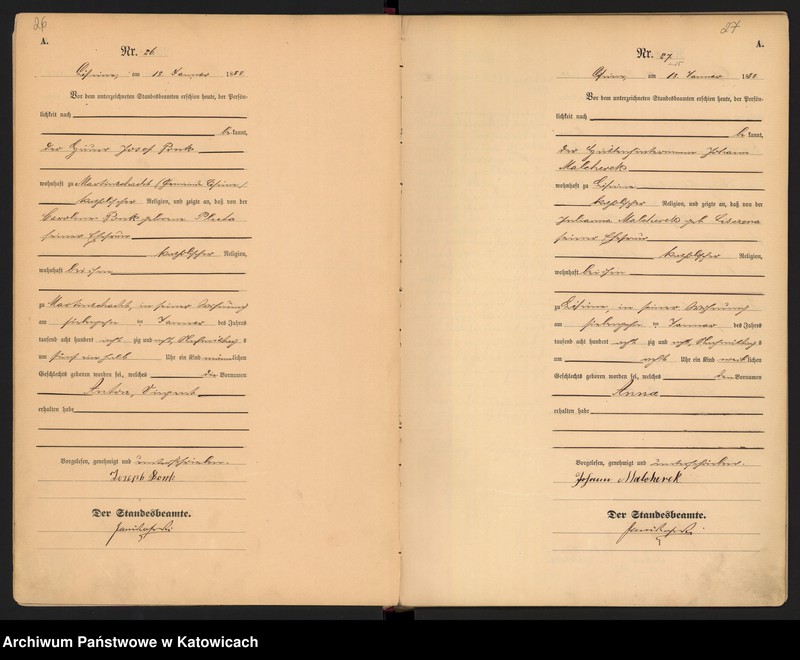 26
A.
Nr. 26
am 18. Januar 1888
Vor dem unterzeichneten Standesbeamten erschien heute, der Persön-
lichkeit nach
bekannt,
der Josef
wohnhaft zu Martinschacht (Gemeinde
katholischer Religion, und zeigte an, daß von der
geborene
seiner Ehefrau
katholischer Religion,
wohnhaft bei ihm
zu Martinschacht, in seiner Wohnung
am siebzehn ten Januar des Jahres
tausend acht hundert acht zig und acht, Nachmittags
um fünf ein halb Uhr ein Kind männlichen
Geschlechts geboren worden sei, welches die Vornamen
Anton, Vinzent
erhalten habe
Vorgelesen, genehmigt und unterschrieben.
Joseph
Der Standesbeamte.
27
A.
Nr. 27
am 18. Januar 1888
Vor dem unterzeichneten Standesbeamten erschien heute, der Persön-
lichkeit nach
bekannt,
der Johann
Malcherek
wohnhaft zu
katholischer Religion, und zeigte an, daß von der
Johanna Malcherek geb.
seiner Ehefrau
katholischer Religion,
wohnhaft bei ihm
zu in seiner Wohnung
am siebzehn ten Januar des Jahres
tausend acht hundert acht zig und acht, Nachmittags
um acht Uhr ein Kind weiblichen
Geschlechts geboren worden sei, welches den Vornamen
Anna
erhalten habe
Vorgelesen, genehmigt und unterschrieben.
Johann Malcherek
Der Standesbeamte.
Archiwum Państwowe w Katowicach